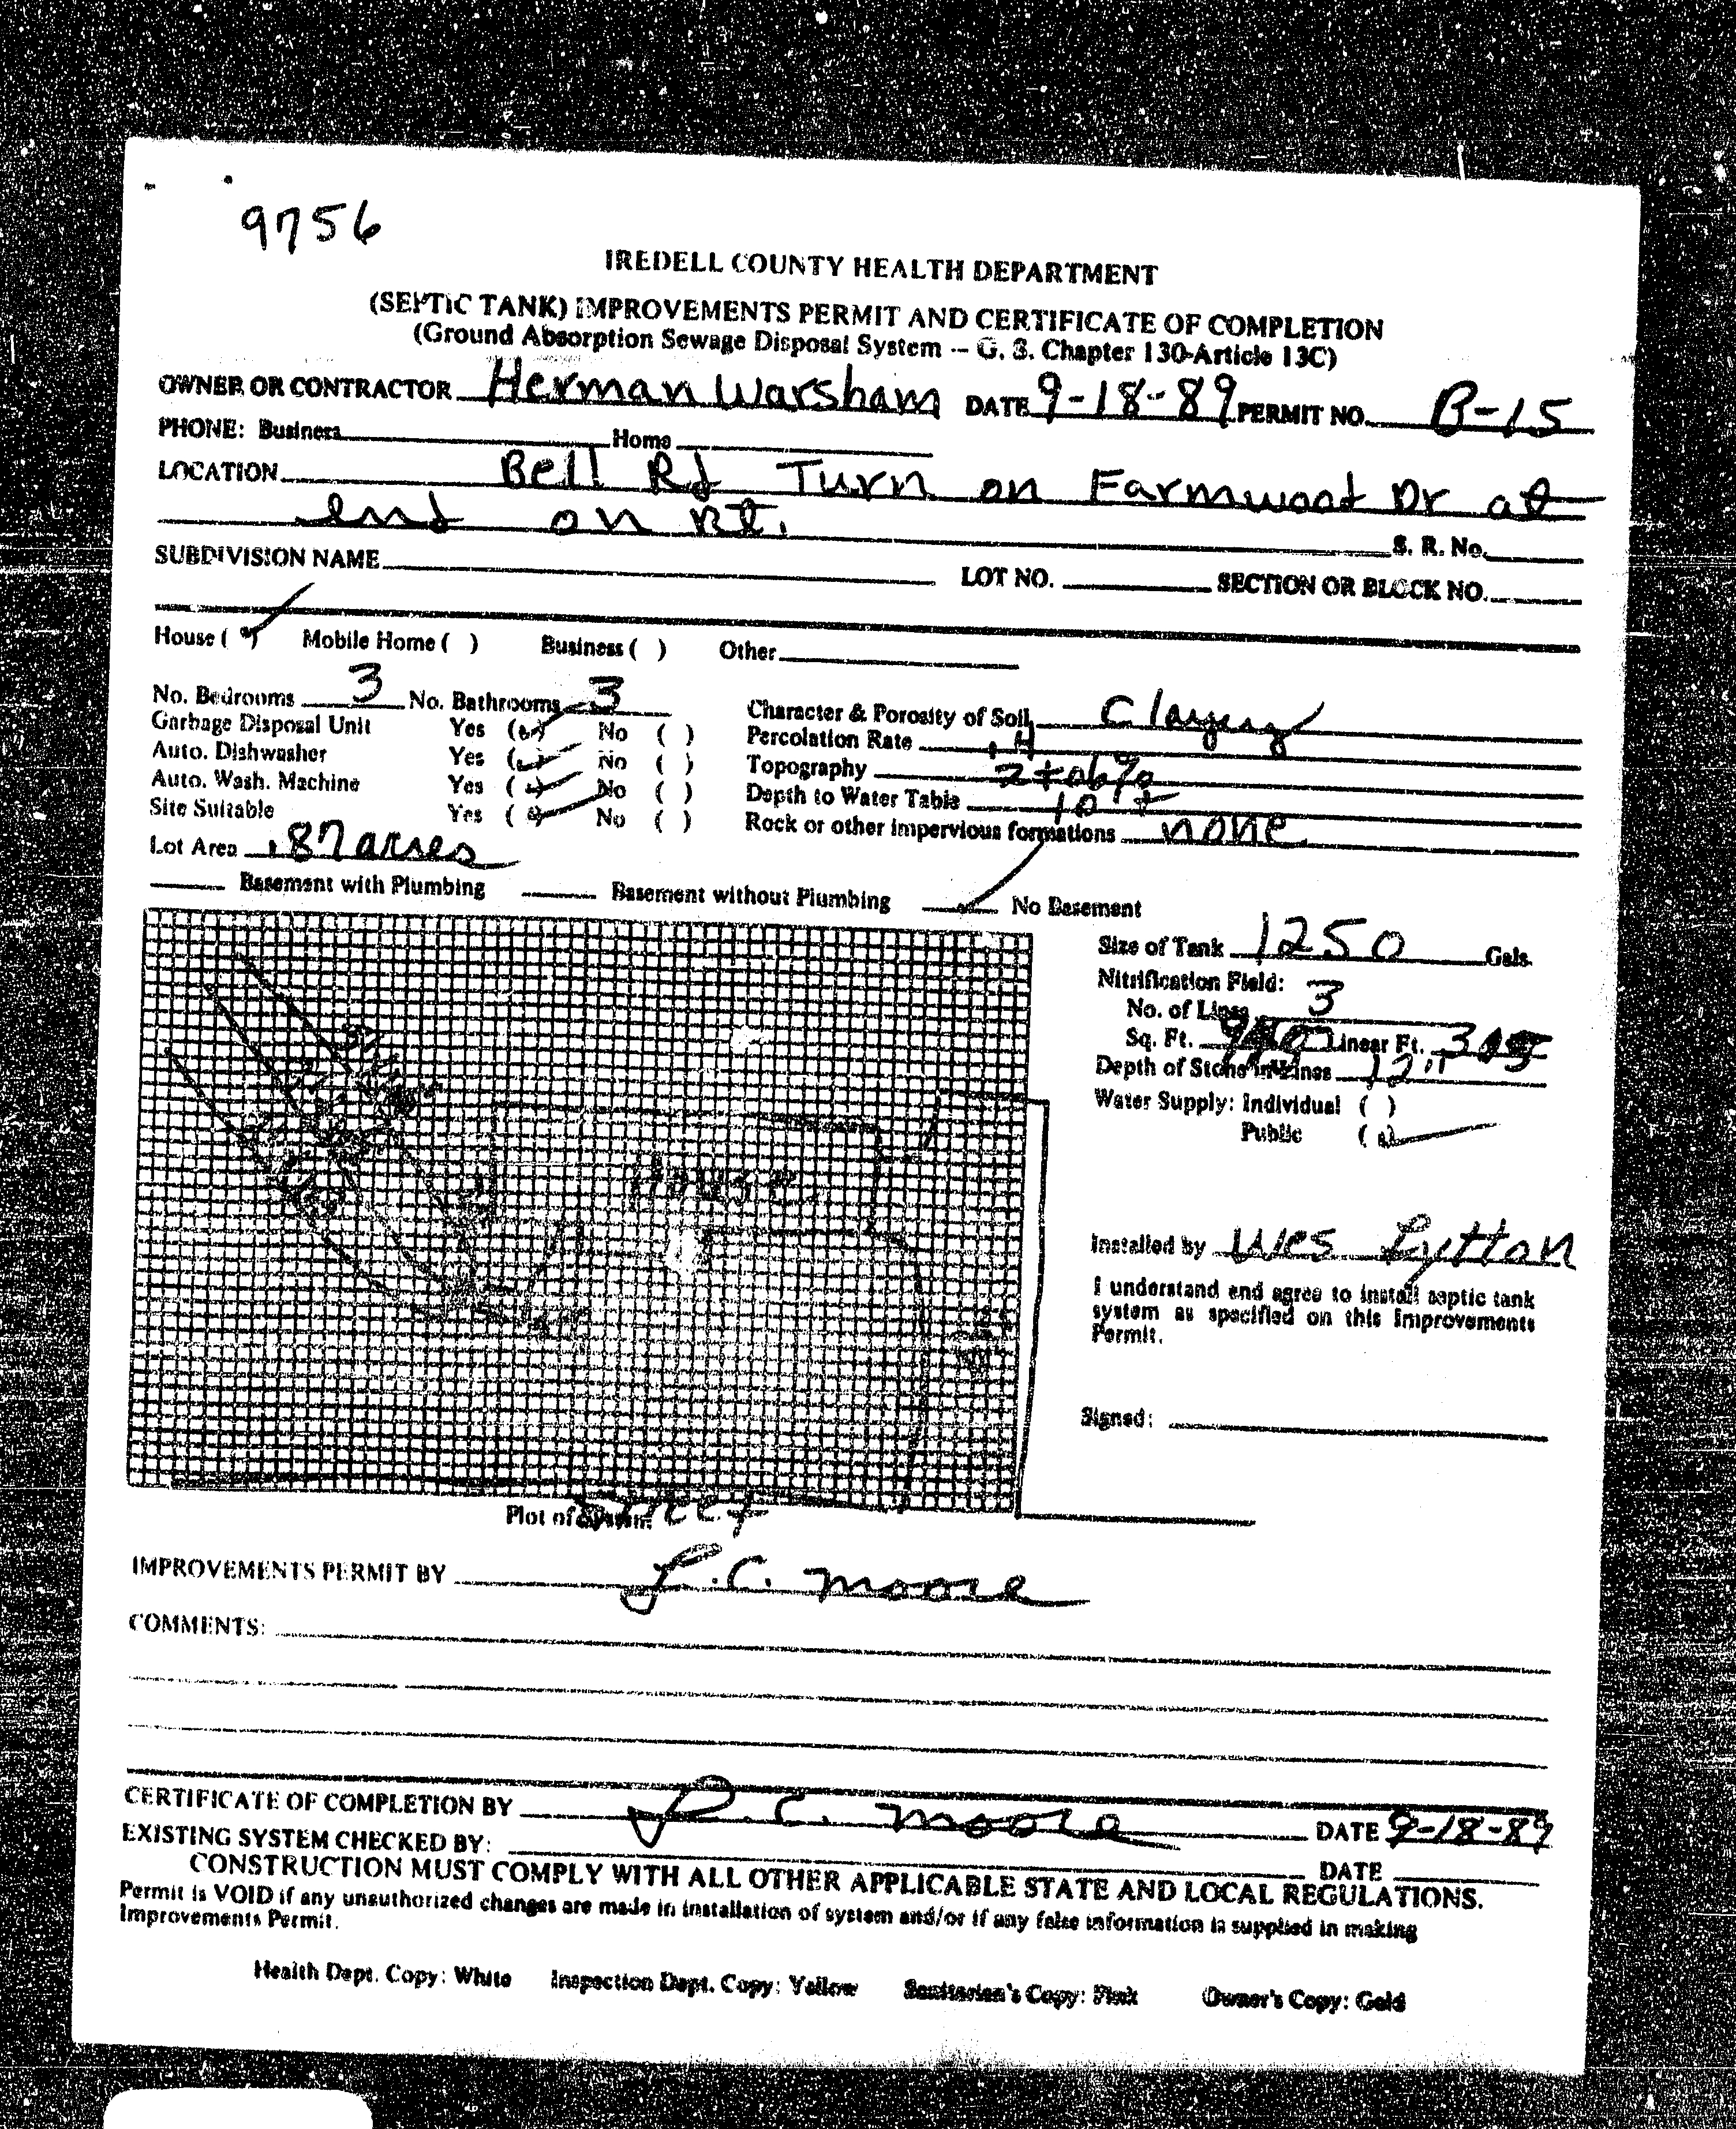 9756
IREDELL COUNTY HEALTH DEPARTMENT
(SEPTIC TANK) IMPROVEMENTS PERMIT AND CERTIFICATE OF COMPLETION
(Ground Absorption Sewage Disposal System -- G. S. Chapter 130-Article 13C)
OWNER OR CONTRACTOR Herman Warsham DATE 9-18-89 PERMIT NO. B-15
PHONE: Business Home
LOCATION Bell Rd Turn on Farmwood Dr at
end on Rt.
S. R. No.
SUBDIVISION NAME LOT NO. SECTION OR BLOCK NO.
House ( ) Mobile Home ( ) Business ( ) Other
No. Bedrooms 3 No. Bathrooms 3 Character & Porosity of Soil Clayey
Garbage Disposal Unit Yes ( ) No ( ) Percolation Rate .4
Auto. Dishwasher Yes ( ) No ( ) Topography 2 to 6%
Auto. Wash. Machine Yes ( ) No ( ) Depth to Water Table 10'+
Site Suitable Yes ( ) No ( ) Rock or other impervious formations none
Lot Area .87 acres
Basement with Plumbing Basement without Plumbing No Basement
Size of Tank 1250 Gals.
Nitrification Field:
No. of Lines 3
Sq. Ft. Linear Ft.
Depth of Stone in Lines 12"
Water Supply: Individual ( )
Public ( )
House
Installed by Wes Lytton
I understand and agree to install septic tank
system as specified on this Improvements
Permit.
Signed:
Plot of System
Street
IMPROVEMENTS PERMIT BY L.C. Moore
COMMENTS:
CERTIFICATE OF COMPLETION BY L.C. Moore DATE 9-18-89
EXISTING SYSTEM CHECKED BY: DATE
CONSTRUCTION MUST COMPLY WITH ALL OTHER APPLICABLE STATE AND LOCAL REGULATIONS.
Permit is VOID if any unauthorized changes are made in installation of system and/or if any false information is supplied in making
Improvements Permit.
Health Dept. Copy: White Inspection Dept. Copy: Yellow Sanitarian's Copy: Pink Owner's Copy: Gold